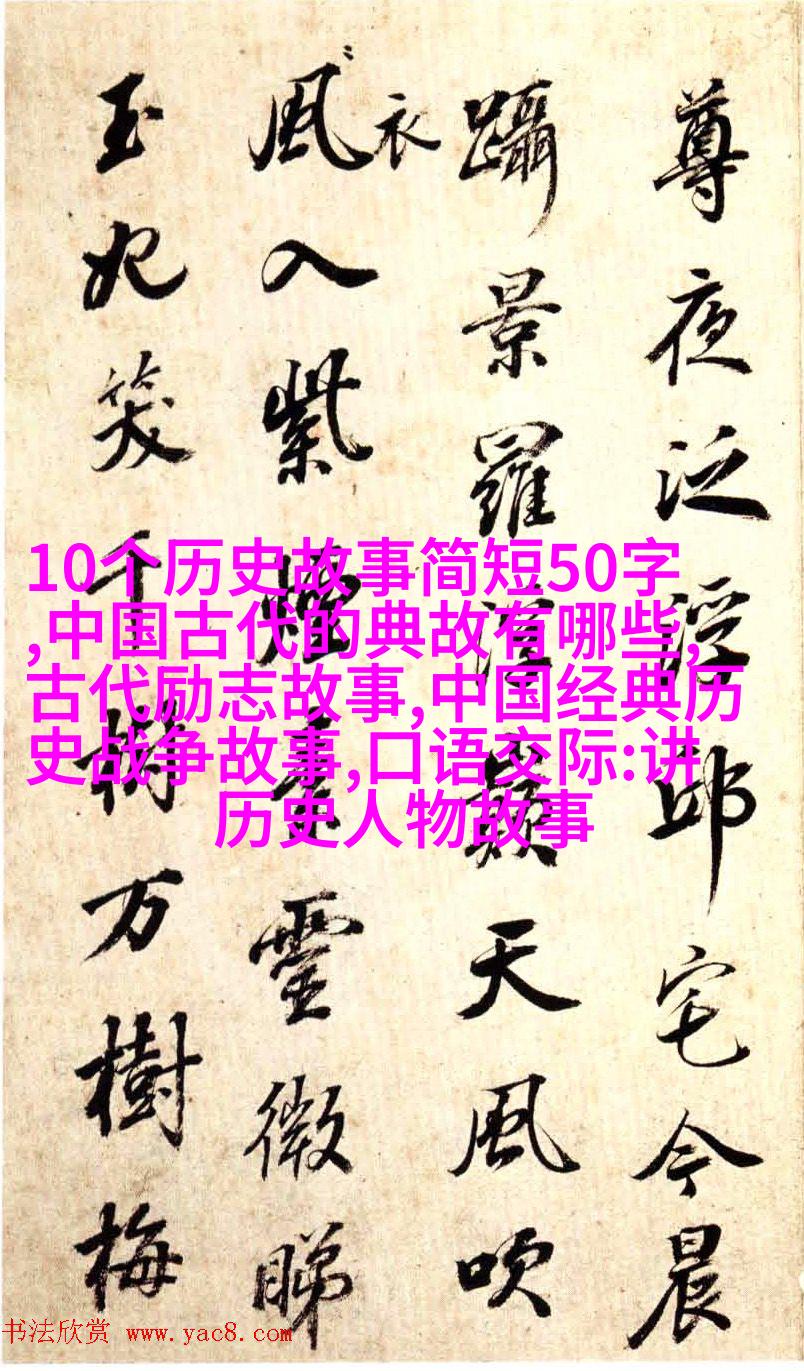 尊夜泛浮邱宅今晨
躡景羅浮巔天風吹
衣
風入紫煙靈微睇
玉妃笑千樹万樹梅
10个历史故事简短50字
,中国古代的典故有哪些,
古代励志故事,中国经典历
史战争故事,口语交际:讲
历史人物故事
书法欣赏 www.yac8.com